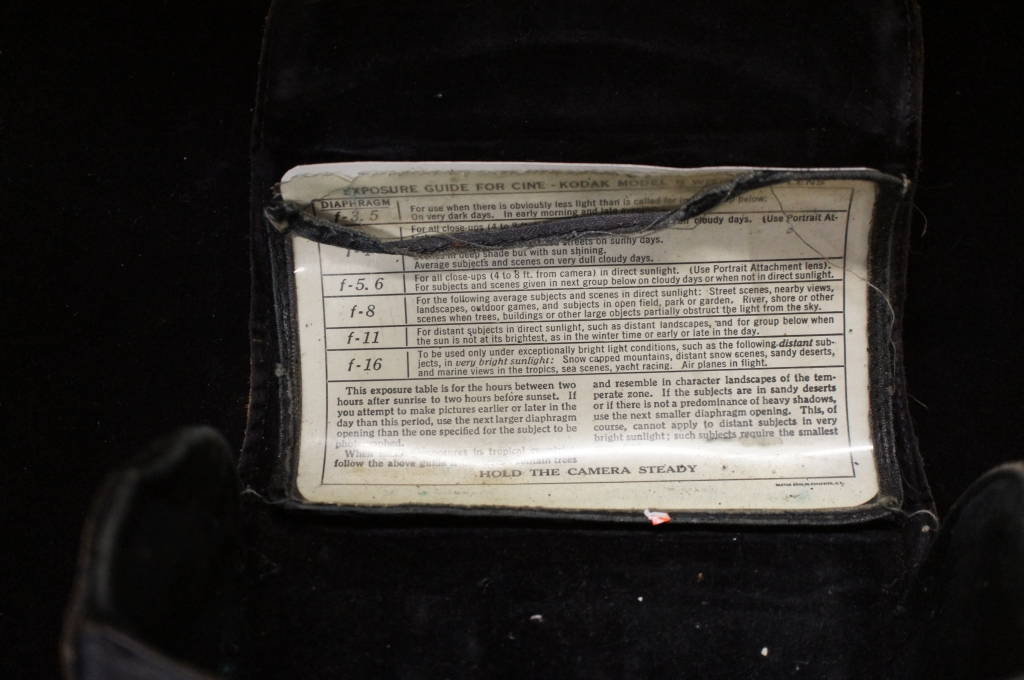 EXPOSURE GUIDE FOR CINE - KODAK MODEL B LENS
DIAPHRAGM
f-3.5
For use when there is obviously less light than is called for below:
On very dark days. In early morning and late cloudy days. (Use Portrait At-
For all close-ups (4 to
streets on sunny days.
in deep shade but with sun shining.
Average subjects and scenes on very dull cloudy days.
f-5.6
For all close-ups (4 to 8 ft. from camera) in direct sunlight. (Use Portrait Attachment lens).
For subjects and scenes given in next group below on cloudy days or when not in direct sunlight.
f-8
For the following average subjects and scenes in direct sunlight: Street scenes, nearby views,
landscapes, outdoor games, and subjects in open field, park or garden. River, shore or other
scenes when trees, buildings or other large objects partially obstruct the light from the sky.
f-11
For distant subjects in direct sunlight, such as distant landscapes, and for group below when
the sun is not at its brightest, as in the winter time or early or late in the day.
f-16
To be used only under exceptionally bright light conditions, such as the following distant sub-
jects, in very bright sunlight: Snow capped mountains, distant snow scenes, sandy deserts,
and marine views in the tropics, sea scenes, yacht racing. Air planes in flight.
This exposure table is for the hours between two
hours after sunrise to two hours before sunset. If
you attempt to make pictures earlier or later in the
day than this period, use the next larger diaphragm
opening than the one specified for the subject to be
photographed.
When in tropical
follow the above guide trees
and resemble in character landscapes of the tem-
perate zone. If the subjects are in sandy deserts
or if there is not a predominance of heavy shadows,
use the next smaller diaphragm opening. This, of
course, cannot apply to distant subjects in very
bright sunlight; such subjects require the smallest
HOLD THE CAMERA STEADY